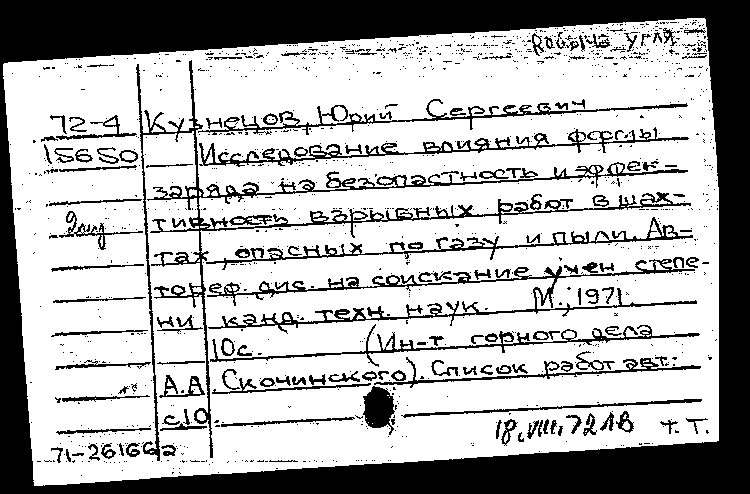 Добыча угля
72-4 Кузнецов, Юрий Сергеевич
15650 Исследование влияния формы
заряда на безопастность и эффек-
тивность взрывных работ в шах-
тах, опасных по газу и пыли. Ав-
тореф. дис. на соискание учен степе-
ни канд. техн. наук. М., 1971.
10с. (Ин-т горного дела
А.А. Скочинского). Список работ авт.:
с.10.
18.VIII.72 АВ т.т.
71-26166а